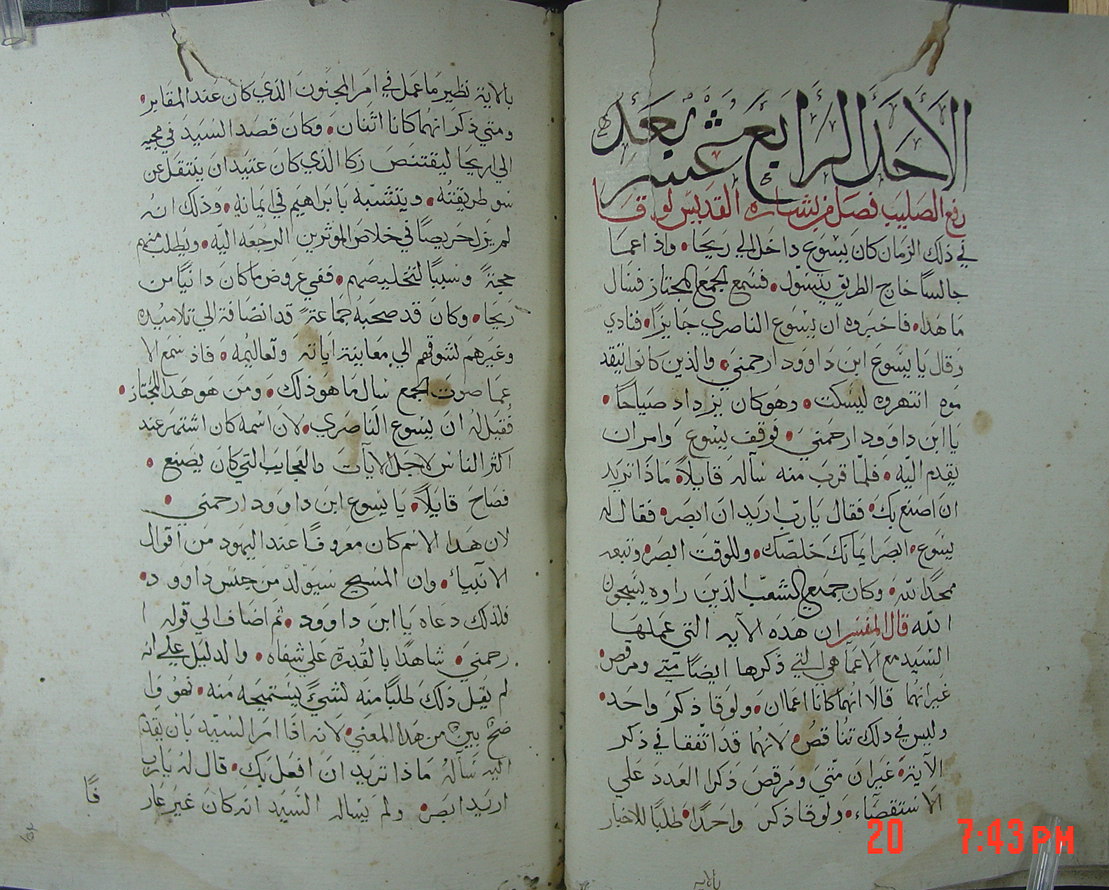 الاحد الرابع عشر بعد
رفع الصليب فصل من بشاره القديس لوقا
في ذلك الزمان كان يسوع داخل الي ريحا • واذ اعما
جالسًا خارج الطريق يتسول • فسمع الجمع المجتاز فسال
ما هذا • فاخبروه ان يسوع الناصري جايزًا • فنادي
وقال يا يسوع ابن داوود ارحمني • والذين كانوا ليتقد
موه انتهروه ليسكت • وهو كان يزداد صياحًا •
يا ابن داوود ارحمني • فوقف يسوع وامر ان
يقدم اليه • فلما قرب منه ساله قايلاً • ماذا تريد
ان اصنع بك • فقال يا رب اريد ان ابصر • فقال له
يسوع • ابصر ايمانك خلصك • وللوقت ابصر • وتبعه
ممجدًا لله • وكان جميع الشعب الذين راوه يسبحون
الله قال المفسر ان هذه الايه التي عملها
السيد مع الاعما هي التي ذكرها ايضًا متي ومرقص •
غير انهما قالا انهما كانا اعمان • ولوقا ذكر واحد •
وليس في ذلك تناقص • لانهما قد اتفقا في ذكر
الآية • غير ان متي ومرقص ذكرا العدد علي
الاستقصاء • ولوقا ذكر واحدًا • طلبًا للاخبار
بالاية
بالاية نظير ما عمل في امر المجنون الذي كان عند المقابر •
ومتي ذكر انهما كانا اثنان • وكان قصد السيد في مجيه
الي اريحا ليقتنص زكا الذي كان عتيد ان ينتقل عن
سو طريقته • ويتشبه بابراهيم في ايمانه • وذلك انه
لم يزل حريصًا في خلاص الموثرين الرجعه اليه • ويطلب منهم
حجة وسببًا لتخليصهم • ففي عروض ما كان دانيًا من
ريحا • وكان قد صحبه جماعة قد انضافة الي تلاميده
وغيرهم لشوقهم الي معاينة اياته وتعاليمه • فاذ سمع الا
عما صوت الجمع سال ما هو ذلك • ومن هو هذا المجتاز •
فقيل له ان يسوع الناصري • لان اسمه كان اشتهر عند
اكثر الناس لاجل الايات والعجايب التي كان يصنع •
فصاح قايلاً • يا يسوع ابن داوود ارحمني •
لان هذا الاسم كان معروفًا عند اليهود من اقوال
الانبياء • وان المسيح سيولد من جنس داوود •
فلذلك دعاه يا ابن داوود • ثم اضاف الي قوله ا
رحمني • شاهدًا بالقدرة علي شفاه • والدليل علي انه
لم يقل ذلك طلبًا منه لشيي يستميحه منه • فهو وا
ضح بين من هذا المعني • لانه افا امر السيد بان يقدم
اليه ساله ماذا تريد ان افعل بك • قال له يا رب
اريد ابصر • ولم يساله السيد انه كان غير عار
فًا